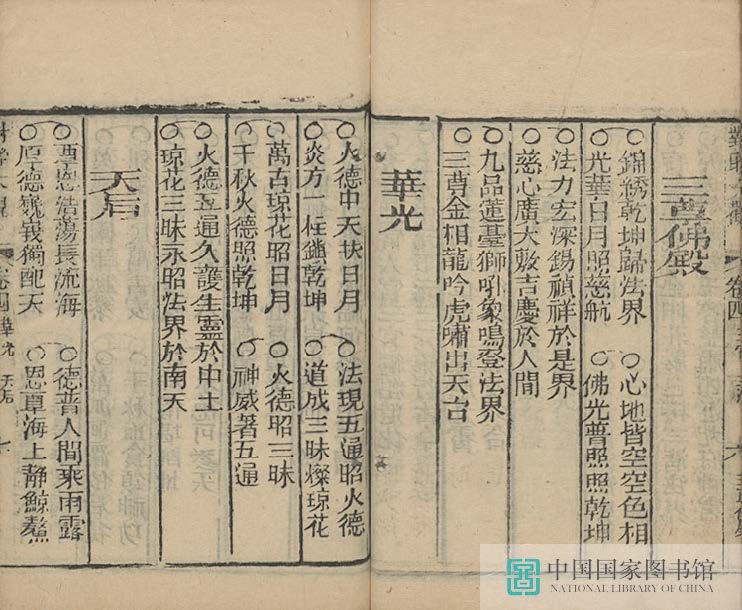 三尊佛殿
錦綉乾坤歸法界 心地皆空空色相
光華白月照慈航 佛光普照照乾坤
法力宏深錫禎祥於是界
慈心廣大敷吉慶於人間
九品蓮臺獅吼象鳴登法界
三尊金相龍吟虎嘯出天台
華光
火德中天扶日月 法現五通昭火德
炎方一柱鎮乾坤 道成三昧燦琼花
萬古琼花昭日月 火德昭三昧
千秋火德照乾坤 神威著五通
火德五通久護生靈於中土
琼花三昧永昭法界於南天
天后
厚恩浩蕩長流海 德普人間乘雨露
厚德巍峩獨配天 恩覃海上静鯨鰲
卷四 華光 天后
中国国家图书馆
NATIONAL LIBRARY OF CHINA